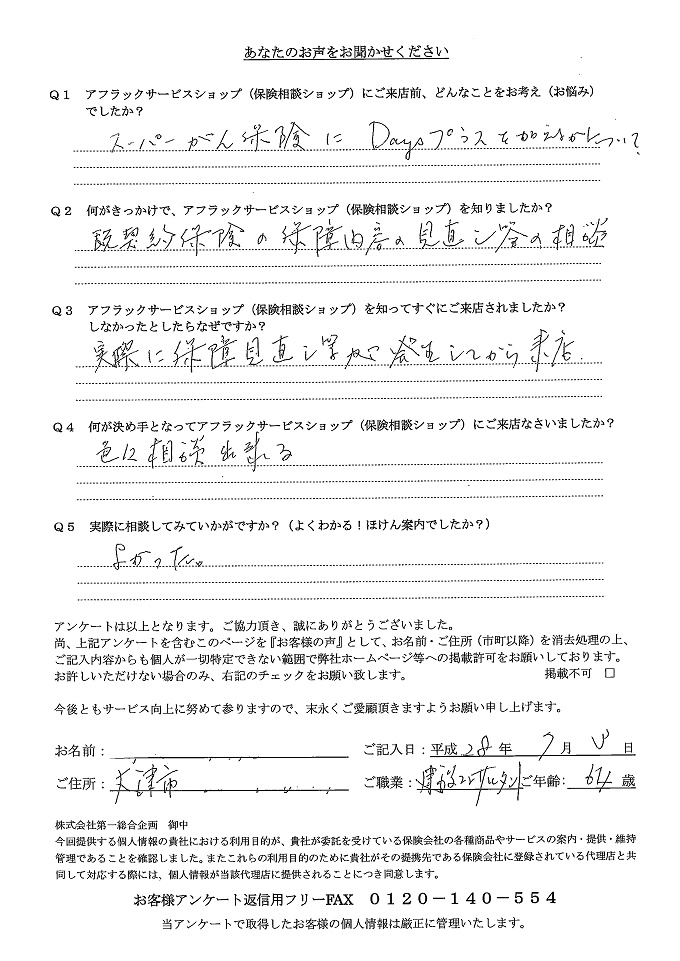 あなたのお声をお聞かせください
Q1 アフラックサービスショップ（保険相談ショップ）にご来店前、どんなことをお考え（お悩み）
でしたか？
スーパーがん保険に Daysプラスを加えるかについて
Q2 何がきっかけで、アフラックサービスショップ（保険相談ショップ）を知りましたか？
既契約保険の保障内容の見直し等の相談
Q3 アフラックサービスショップ（保険相談ショップ）を知ってすぐにご来店されましたか？
しなかったとしたらなぜですか？
実際に保障見直し学が発生してから来店.
Q4 何が決め手となってアフラックサービスショップ（保険相談ショップ）にご来店なさいましたか？
色に相談出来る
Q5 実際に相談してみていかがですか？（よくわかる！ほけん案内でしたか？）
よかった。
アンケートは以上となります。ご協力頂き、誠にありがとうございました。
尚、上記アンケートを含むこのページを『お客様の声』として、お名前・ご住所（市町以降）を消去処理の上、
ご記入内容からも個人が一切特定できない範囲で弊社ホームページ等への掲載許可をお願いしております。
お許しいただけない場合のみ、右記のチェックをお願い致します。 掲載不可 □
今後ともサービス向上に努めて参りますので、末永くご愛顧頂きますようお願い申し上げます。
お名前： ご記入日：平成 28 年 7 月 日
ご住所： 大津市 ご職業： 建設コンサルタント ご年齢： 64 歳
株式会社第一総合企画 御中
今回提供する個人情報の貴社における利用目的が、貴社が委託を受けている保険会社の各種商品やサービスの案内・提供・維持
管理であることを確認しました。またこれらの利用目的のために貴社がその提携先である保険会社に登録されている代理店と共
同して対応する際には、個人情報が当該代理店に提供されることにつき同意します。
お客様アンケート返信用フリーFAX 0120-140-554
当アンケートで取得したお客様の個人情報は厳正に管理いたします。